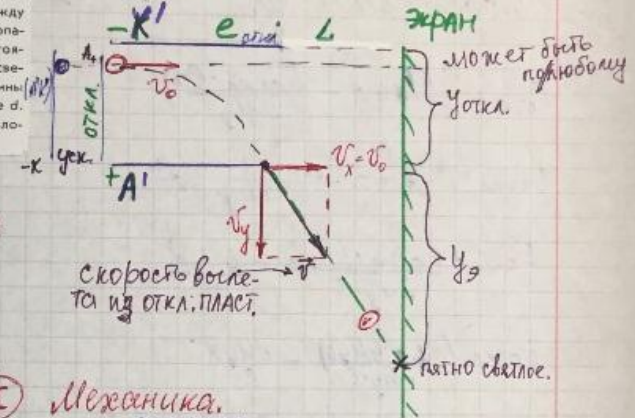 жду
опа-
тоя-
све-
ины
e d.
ло-
-K'
e откл.
L
ЭКРАН
может быть
по-любому
A₁
v₀
откл.
yоткл.
-K
уск.
+
A'
Vₓ=V₀
Vy
v
yэ
скорость выле-
та из откл. пласт.
пятно светлое.
I Механика.